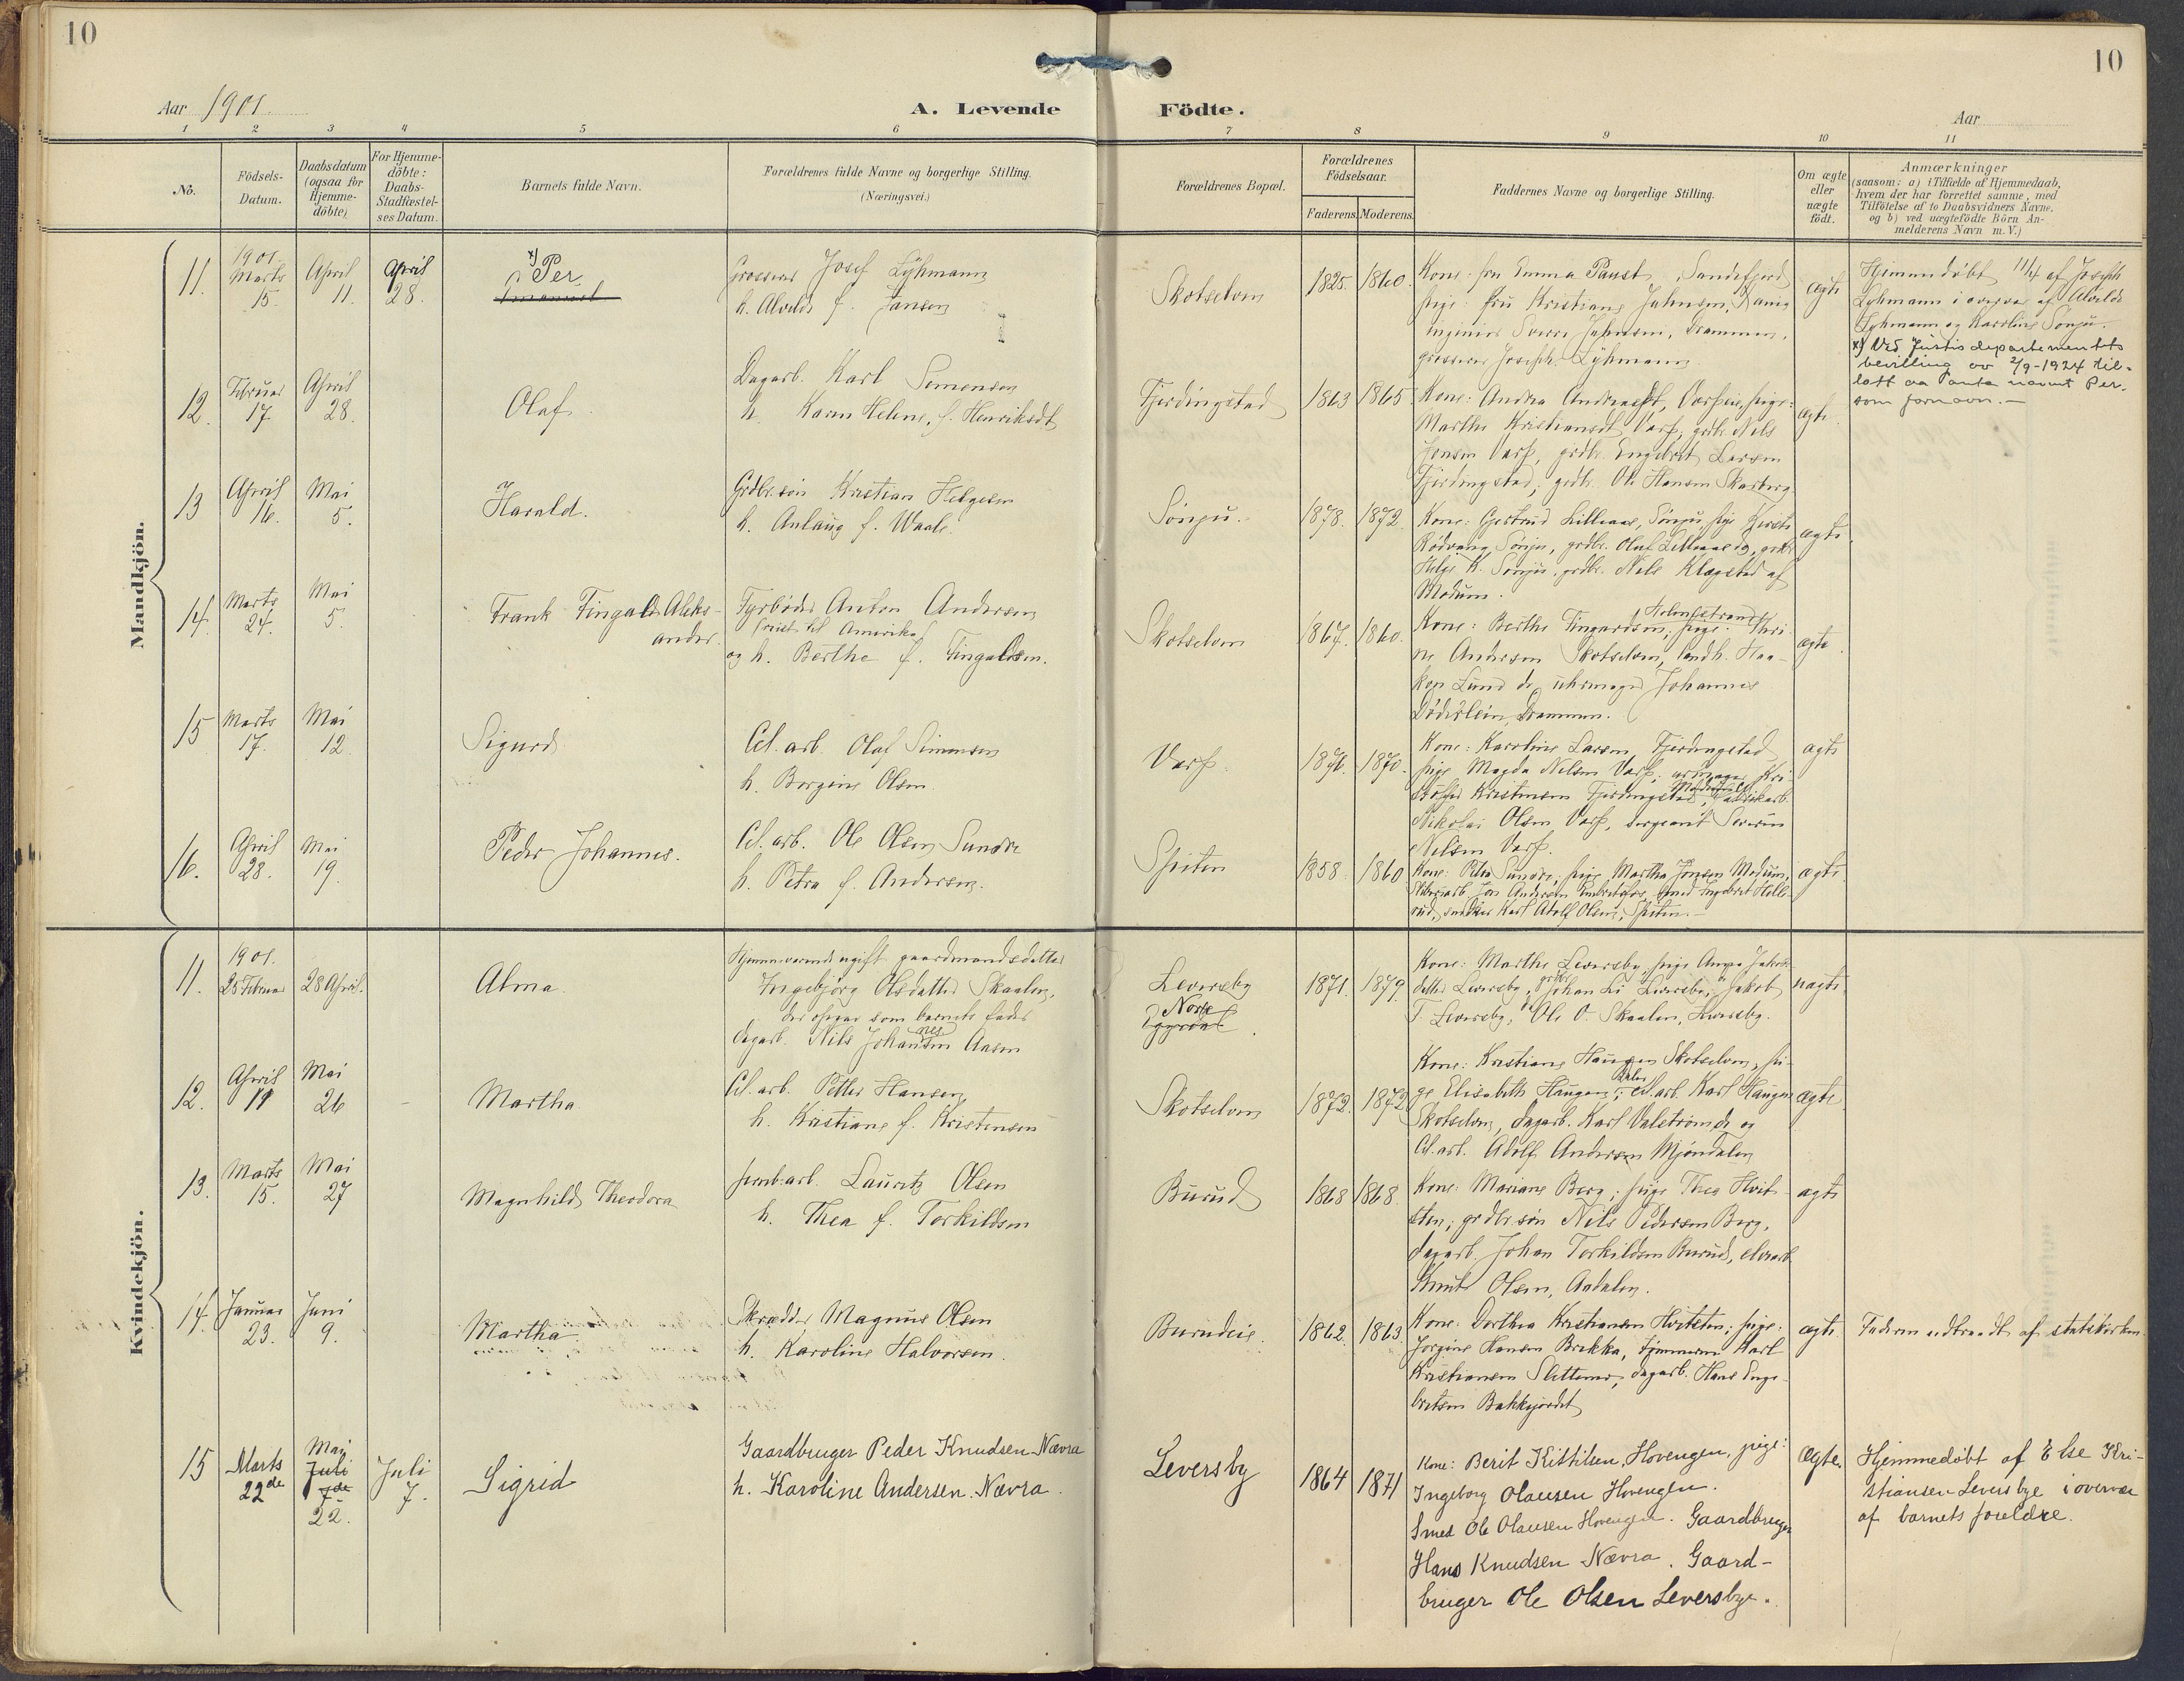 10
10
Aar 1901.
A. Levende
Födte.
Aar
1 2 3 4 5 6 7 8 9 10 11
No.
Födsels-Datum.
Daabsdatum (ogsaa for Hjemme-döbte).
For Hjemme-döbte: Daabs-Stadfæstel-ses Datum.
Barnets fulde Navn.
Forældrenes fulde Navne og borgerlige Stilling.
(Næringsvei.)
Forældrenes Bopæl.
Forældrenes Födselsaar.
Faderens. Moderens.
Faddernes Navne og borgerlige Stilling.
Om ægte eller uægte födt.
Anmærkninger
(saasom: a) i Tilfælde af Hjemmedaab,
hvem der har forrettet samme, med
Tilföielse af to Daabsvidners Navne,
og b) ved uægtefödte Börn An-
melderens Navn m. V.)
Mandkjön.
11. 1901 Marts 15. April 11. April 28.
x) Per
Grosserer Josef Lÿhmann
h. Alvilde f. Jansen
Skotselven 1825. 1860.
Kone: fru Emma Paust, Sandefjord
pige: fru Kristiane Jahnsen, Dania
ingeniør Sverre Jahnsen, Drammen,
grosserer Joseph Lÿhmann
ægte
Hjemmedøbt 11/4 af Joseph
Lyhmann i overvær af Alvilde
Lyhmann og Karoline Sønju.
x) Ved Justisdepartementets
bevilling av 2/9-1924 til-
latt aa anta navnet Per
som fornavn.-
12. Februar 17. April 28.
Olaf
Dagarb. Karl Simensen
h. Karen Helene, f. Henriksdt
Fjerdingstad 1863 1865
Kone: Andrea Andreasdt, Varpeie, pige:
Marthe Kristiansdt Varp, grdbr. Nils
Jensen Varp, grdbr. Engebret Larsen
Fjerdingstad, grdbr. Ole Hansen Skarberg
ægte
13 April 16. Mai 5.
Harald.
Grdbr.søn Kristian Helgesen
h. Anlaug f. Waale.
Sönju. 1878. 1872.
Kone: Gjertrud Lilleaas, Sønju, pige Kjersti
Rødvang Sønju, grdbr. Oluf Lilleaas dg, grdbr
Helge K. Sønju, grdbr. Nils Klopstad af
Modum.
ægte
14. Marts 24. Mai 5.
Frank Fingal Aleks-
ander.
Fyrbøder Anton Andersen
(reist til Amerika)
og h. Berthe f. Fingalsen.
Skotselven 1867. 1860.
Kone: Berthe Fingardsen, Holmestrand, pige: Thri-
ne Andersen Skotselven, landh. Haa-
kon Lund dg, uhrmager Johannes
Döderlein, Drammen.
ægte
15 Marts 17. Mai 12
Sigurd
Cel. arb. Olaf Simensen
h. Borgine Olsen.
Varp. 1876. 1870.
Kone: Karoline Larsen, Fjerdingstad
pige Magda Nilsen Varp,
Kristensen Fjerdingstad, fabrikarb.
Nikolai Olsen Varp, sergeant Severin
Nilsen Varp.
ægte
16. April 28. Mai 19.
Peder Johannes.
Cel. arb. Ole Olsen Sundre
h. Petra f. Andersen.
Spiten 1858. 1860
Kone: Petra Sundre, pige Martha Jensen Modum,
Sliberiarb. Jon Andersen Embretsfos, smed Ingebret Helle-
rud, snedker Karl Adolf Olsen, Spiten.-
ægte
Kvindekjön.
11. 1901. 25 Februar 28 April.
Alma
Hjemmeværende ugift gaardmandsdatter
Ingebjørg Olsdatter Skaalen,
der opgav som barnets fader
dagarb. Nils Johannesen Aasen
Leversby
Nore
1871. 1879
Kone: Marthe Leversby, pige Anna Jakobs-
datter Leversby, grdbr. Johan Li Leversby, Jakob
T. Leversby, Ole O. Skaalen, Leversby.
uægte
12. April 11 Mai 26 -
Martha
Cel. arb. Petter Hansen,
h. Kristiane f. Kristensen
Skotselven 1872. 1872
Kone: Kristiane Haugen Skotselven, pi-
ge Elisabeth Haugen, cel. arb. Karl Haugen
Skotselven, dagarb. Karl Valstrøm dg og
Cel. arb. Adolf Andersen Mjøndalen
ægte
13. Marts 15. Mai 27
Magnhild Theodora
Jernb.arb. Lauritz Olsen
h. Thea f. Torkildsen
Burud 1868 1868.
Kone: Mariane Berg; pige Thea Hvit-
sten; grdbr.søn Nils Pedersen Berg,
dagarb. Johan Torkildsen Burud, elvearb
Knut Olsen, Aadalen.
ægte
14. Januar 23. Juni 9.
Martha
Skrædder Magnus Olsen
h. Karoline Halvorsen.
Burudeie. 1862. 1863.
Kone: Dorthea Kristiansen Hvitsten; pige:
Jørgine Hansen Brekka, tømmerm. Karl
Kristiansen Slettemo, dagarb. Hans Enge-
bretsen Bakkejordet
ægte
Faderen udtraadt af statskirken
15 Marts 22de Mai Juli 7de 22. Juli 7.
Sigrid
Gaardbruger Peder Knudsen Nævra
h. Karoline Andersen. Nævra.
Leversby 1864 1871
Kone: Berit Kittilsen, Hovengen, pige:
Ingeborg Olausen Hovengen.
Smed Ole Olausen Hovengen. Gaardbruger
Hans Knudsen Nævra. Gaard-
bruger Ole Olsen Leversbye.
Ægte.
Hjemmedøbt af Else Kri-
stiansen Leversbye i overvær
af barnets foreldre.